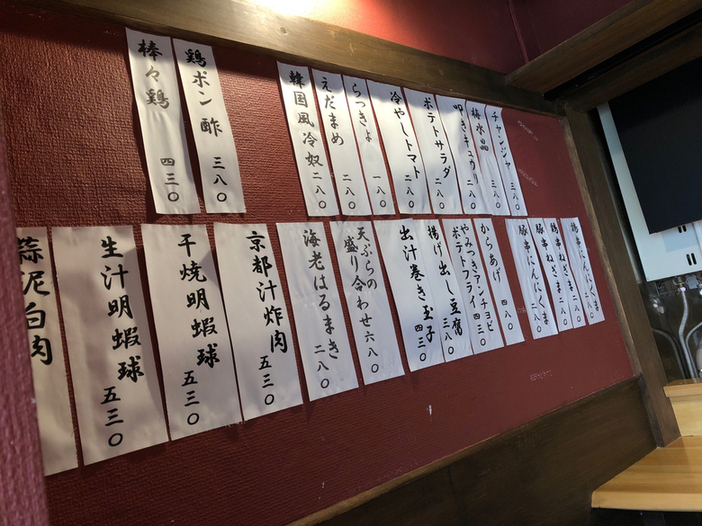 チャンジャ 三八〇
梅水晶 三八〇
叩きキュウリ 二八〇
ポテトサラダ 二八〇
冷やしトマト 二八〇
らっきょ 一八〇
えだまめ 二八〇
韓国風冷奴 二八〇
鶏ポン酢 三八〇
棒々鶏 四三〇
鶏串にんにくま 二八〇
鶏串ねぎま 二八〇
豚串ねぎま 二八〇
豚串にんにくま 二八〇
からあげ 四八〇
やみつきアンチョビ
ポテトフライ
揚げ出し豆腐 三八〇
出汁巻き玉子 四三〇
天ぷらの
盛り合わせ 六八〇
海老はるまき 二八〇
京都汁炸肉 五三〇
干焼明蝦球 五三〇
生汁明蝦球 五三〇
蒜泥白肉